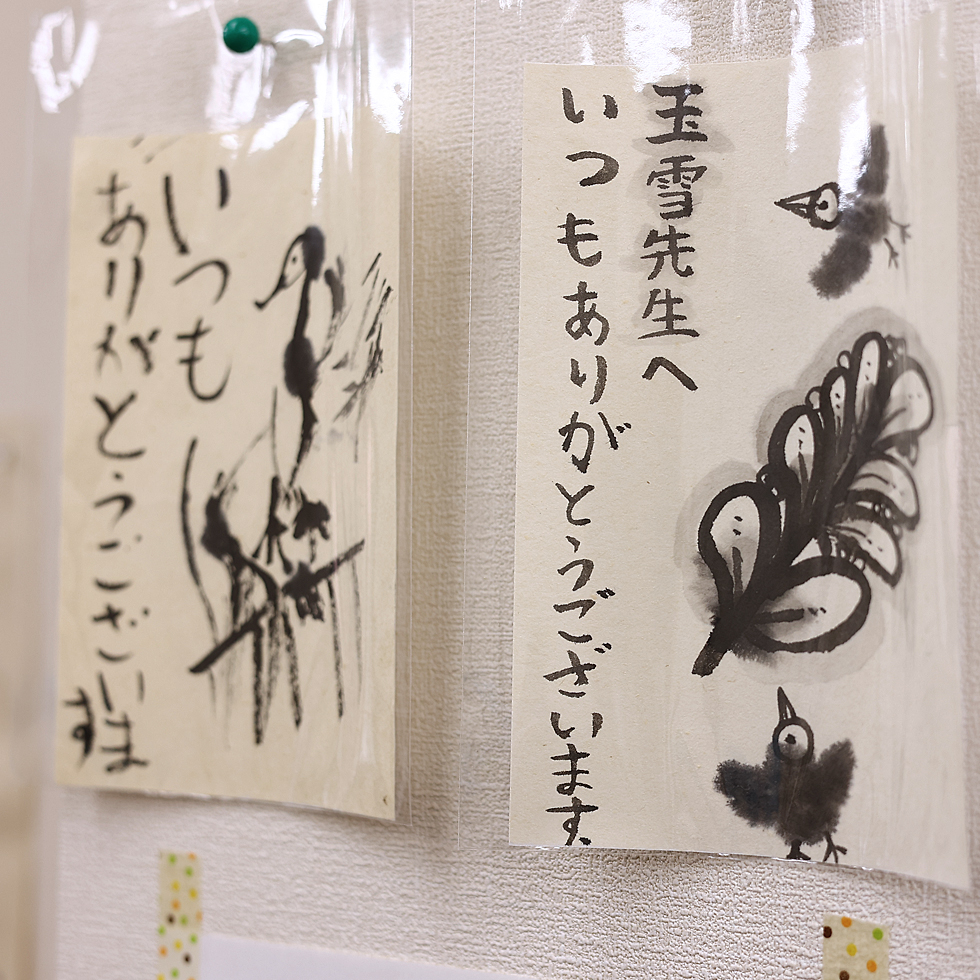 玉雪先生へ
いつもありがとうございます
いつも
ありがとうございます